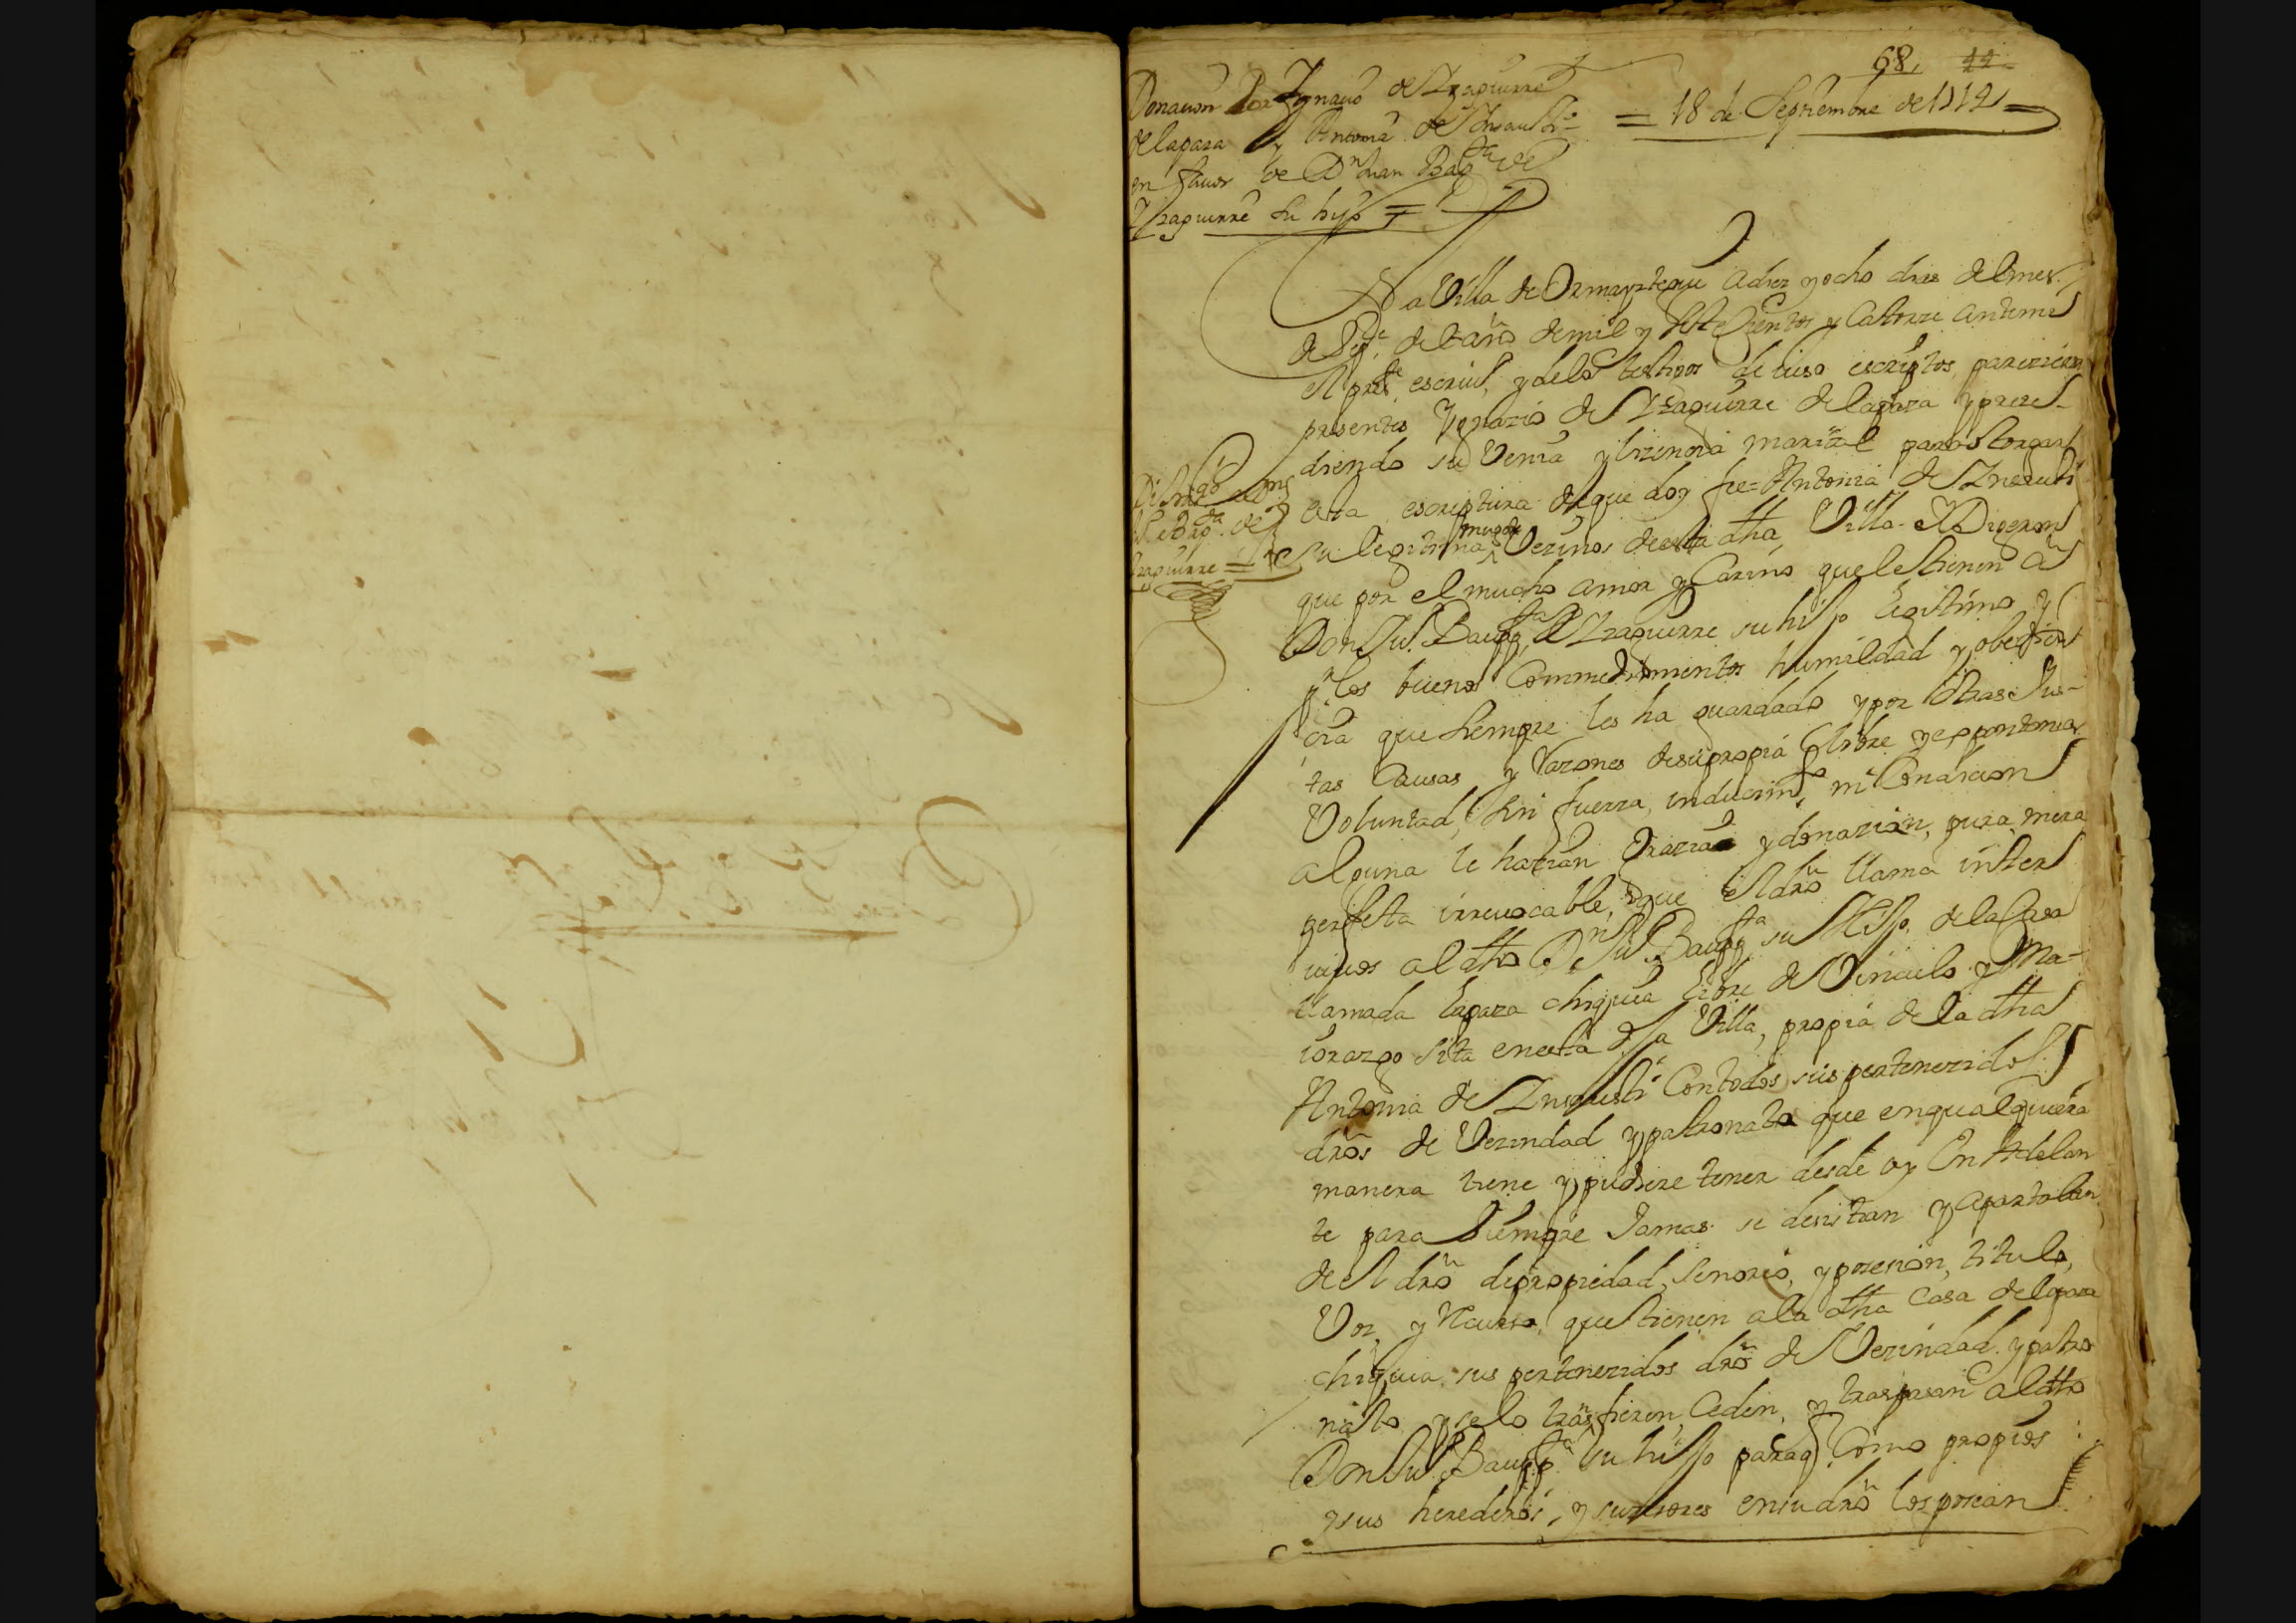 68. 44
Donacion Por Ygnacio de Yzaguirre
de lapaza y Antonia de Ynsausti
en favor de Dn Juan Bapta de
Yzaguirre su hijo =
= 18 de Septiembre de 1714 =
En la Villa de Ormayztegui a diez y ocho dias del mes
de Sepe del año de mil y setecientos y Catorze antemi
el preste escriv. y de los testigos de iuso escriptos parecieron
presentes Ygnazio de Yzaguirre de lapaza y prece-
diendo su Venia y lizencia marital para otorgar
esta escriptura de que doy fee = Antonia de Ynsausti
su legitima muger Vezinos de esta dha Villa Dixeron
que por el mucho amor y Carino que le tienen a
Don Ju. Baupta de Yzaguirre su hijo legitimo y
pr los buenos Commedimientos humildad y obedien
cia que siempre les ha guardado y por otras Jus-
tas Causas y Razones de su propia libre y espontanea
Voluntad, sin fuerza, inducimto ni Condicion
alguna le hazian Grazia y donazion, pura, mera
perfecta irrevocable, que el dro llama inter
vivos al dho Dn Ju. Baupta su Hijo. de la Casa
llamada lapaza chiquia libre de Vinculo y Ma-
iorazgo sita en esta dha Villa, propia de la dha
Antonia de Ynsausti Con todos sus pertenezidos
dros de Vezindad y patronato que en qualquiera
manera tiene y pudiere tener desde oy En Adelan
te para siempre Jamas se desistian y apartaban
de el dro de propiedad, Senorio, y posesion, titulo,
Voz, y Recurso, que tienen a la dha Casa de lapaza
chiquia, sus pertenezidos dro de Vezindad y patro
nato y se lo transfieren, Ceden, y traspasan al dho
Don Ju. Baupta su hijo paraq Como propios
y sus herederos, y subcesores en su dro los posean